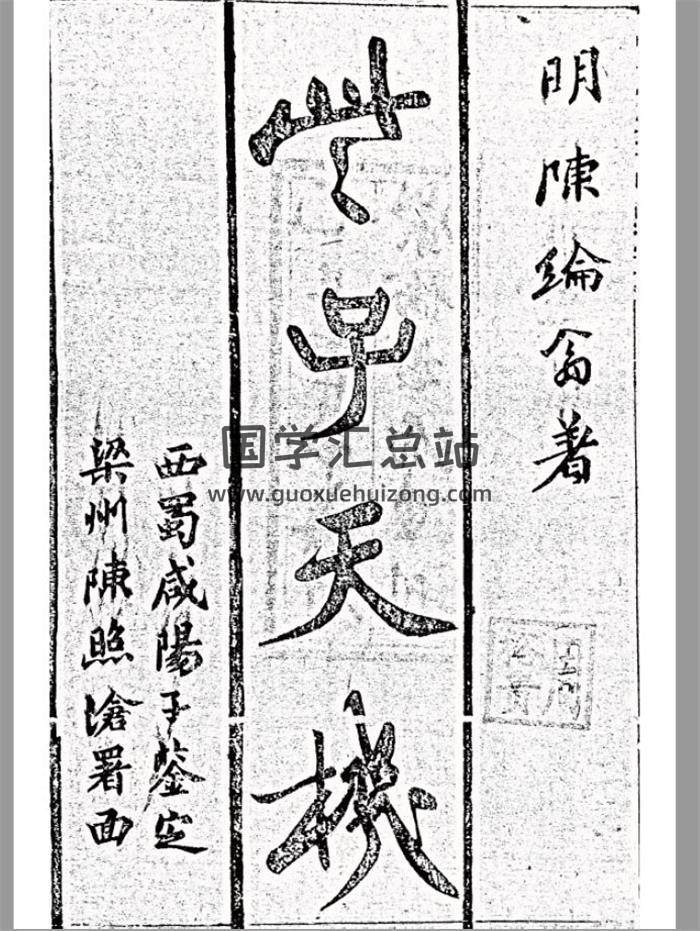 明陳綸著
些子天機
西蜀咸陽子鉴定
梁州陳照滄署面
国学汇总站
www.guoxuehuizong.com